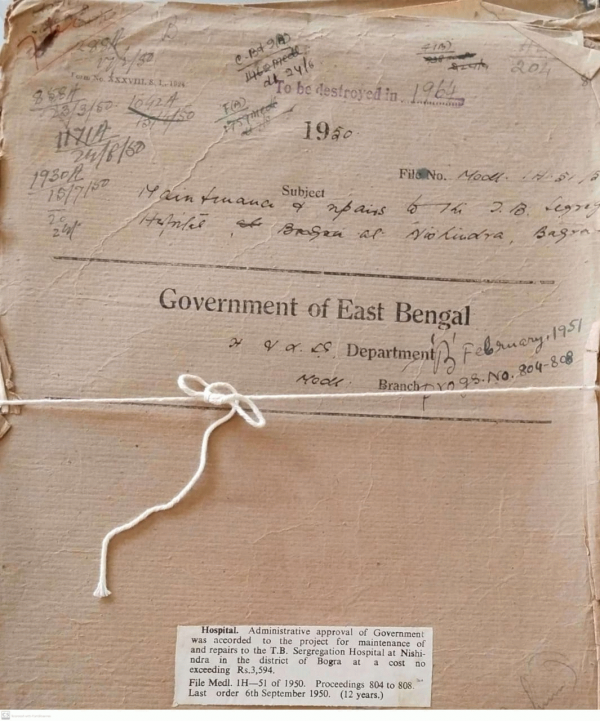 17/3/50
Form No. XXXVIII. S. I., 1936
C.B. 9(A)
To be destroyed in 1964
204
868A
23/3/50
1042A
1171A
24/5/50
1930A
15/7/50
1950
File No. Medl. 1H-51/5
Subject
Maintenance & repairs to the T.B. Segreg
Hospital at Bogra at Nishindra, Bogra
Government of East Bengal
H & L.S. Department
'B' February, 1951
Medl. Branch
Progs. No. 804-808
Hospital. Administrative approval of Government
was accorded to the project for maintenance of
and repairs to the T.B. Sergregation Hospital at Nishi-
ndra in the district of Bogra at a cost no
exceeding Rs.3,594.
File Medl. 1H—51 of 1950. Proceedings 804 to 808.
Last order 6th September 1950. (12 years.)